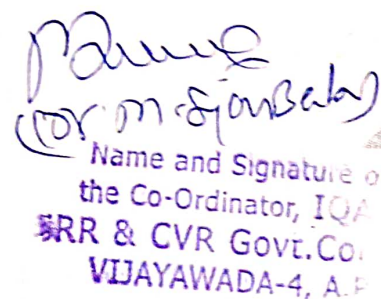 (Dr. M.
Name and Signature o
the Co-Ordinator, IQA
SRR & CVR Govt.Co
VIJAYAWADA-4, A.P